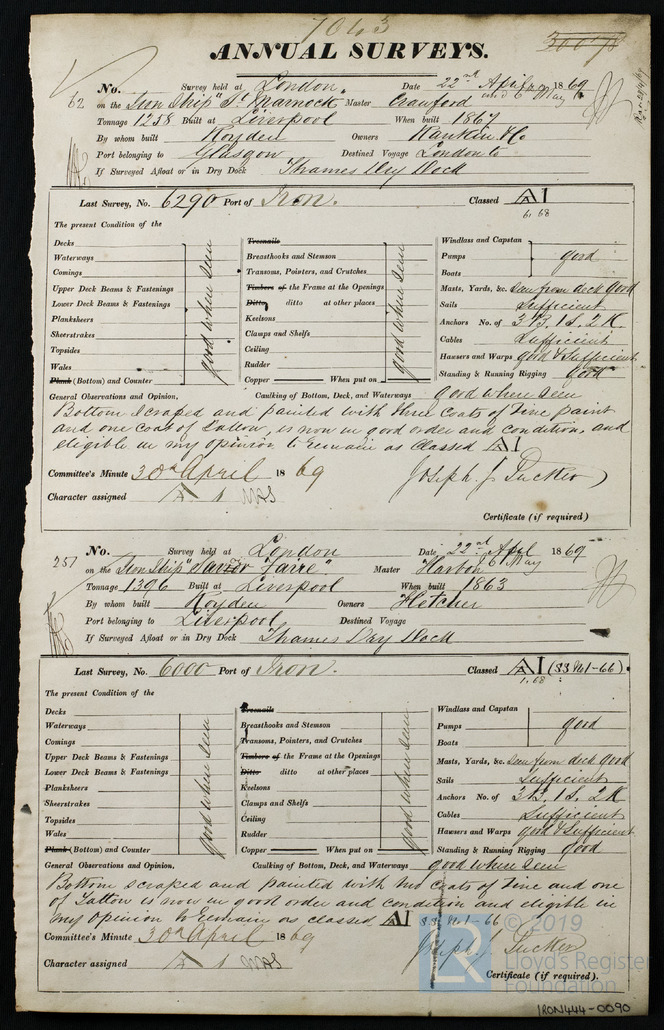 7043
ANNUAL SURVEYS.
No. Survey held at London. Date 22nd April 1869
62 on the Iron Ship "St. Marnock" Master Crawford and 6 May
Tonnage 1258 Built at Liverpool When built 1867
By whom built Royden Owners Rankin & Co.
Port belonging to Glasgow Destined Voyage London to
If Surveyed Afloat or in Dry Dock Thames Dry Dock
Last Survey, No. 6290 Port of Iron. Classed A A1
6, 68
The present Condition of the
Decks
Waterways
Comings
Upper Deck Beams & Fastenings
Lower Deck Beams & Fastenings
Planksheers
Sheerstrakes
Topsides
Wales
Plank (Bottom) and Counter
good when seen
Treenails
Breasthooks and Stemson
Transoms, Pointers, and Crutches
Timbers of the Frame at the Openings
Ditto ditto at other places
Keelsons
Clamps and Shelfs
Ceiling
Rudder
Copper When put on
good when seen
Windlass and Capstan
Pumps good
Boats
Masts, Yards, &c. seen from deck good
Sails Sufficient
Anchors No. of 3 B. 1 S. 2 K.
Cables Sufficient
Hawsers and Warps good & Sufficient
Standing & Running Rigging good
General Observations and Opinion, Caulking of Bottom, Deck, and Waterways good when seen
Bottom scraped and painted with three coats of Zinc paint
and one coat of Tallow, is now in good order and condition, and
eligible in my opinion to remain as Classed A A1
Committee's Minute 30th April 1869 Joseph J Tucker
Character assigned A 1
Certificate (if required)
No. Survey held at London Date 22nd April 1869
251 on the Iron Ship "Jaire" Master Harbon 6 May
Tonnage 1396 Built at Liverpool When built 1863
By whom built Royden Owners Fletcher
Port belonging to Liverpool Destined Voyage
If Surveyed Afloat or in Dry Dock Thames Dry Dock
Last Survey, No. 6000 Port of Iron. Classed A A1 (SS No1-66)
1, 68
The present Condition of the
Decks
Waterways
Comings
Upper Deck Beams & Fastenings
Lower Deck Beams & Fastenings
Planksheers
Sheerstrakes
Topsides
Wales
Plank (Bottom) and Counter
good when seen
Treenails
Breasthooks and Stemson
Transoms, Pointers, and Crutches
Timbers of the Frame at the Openings
Ditto ditto at other places
Keelsons
Clamps and Shelfs
Ceiling
Rudder
Copper When put on
good when seen
Windlass and Capstan
Pumps good
Boats
Masts, Yards, &c. seen from deck good
Sails Sufficient
Anchors No. of 3 B. 1 S. 2 K
Cables Sufficient
Hawsers and Warps good & Sufficient
Standing & Running Rigging good
General Observations and Opinion, Caulking of Bottom, Deck, and Waterways good when seen
Bottom scraped and painted with two coats of Zinc and one
of Tallow is now in good order and condition and eligible in
my opinion to remain as classed A A1 SS No1-66
Committee's Minute 30th April 1869 Joseph J Tucker
Character assigned A 1
Certificate (if required).
© 2019
Lloyd's Register
Foundation
IRON444-0090